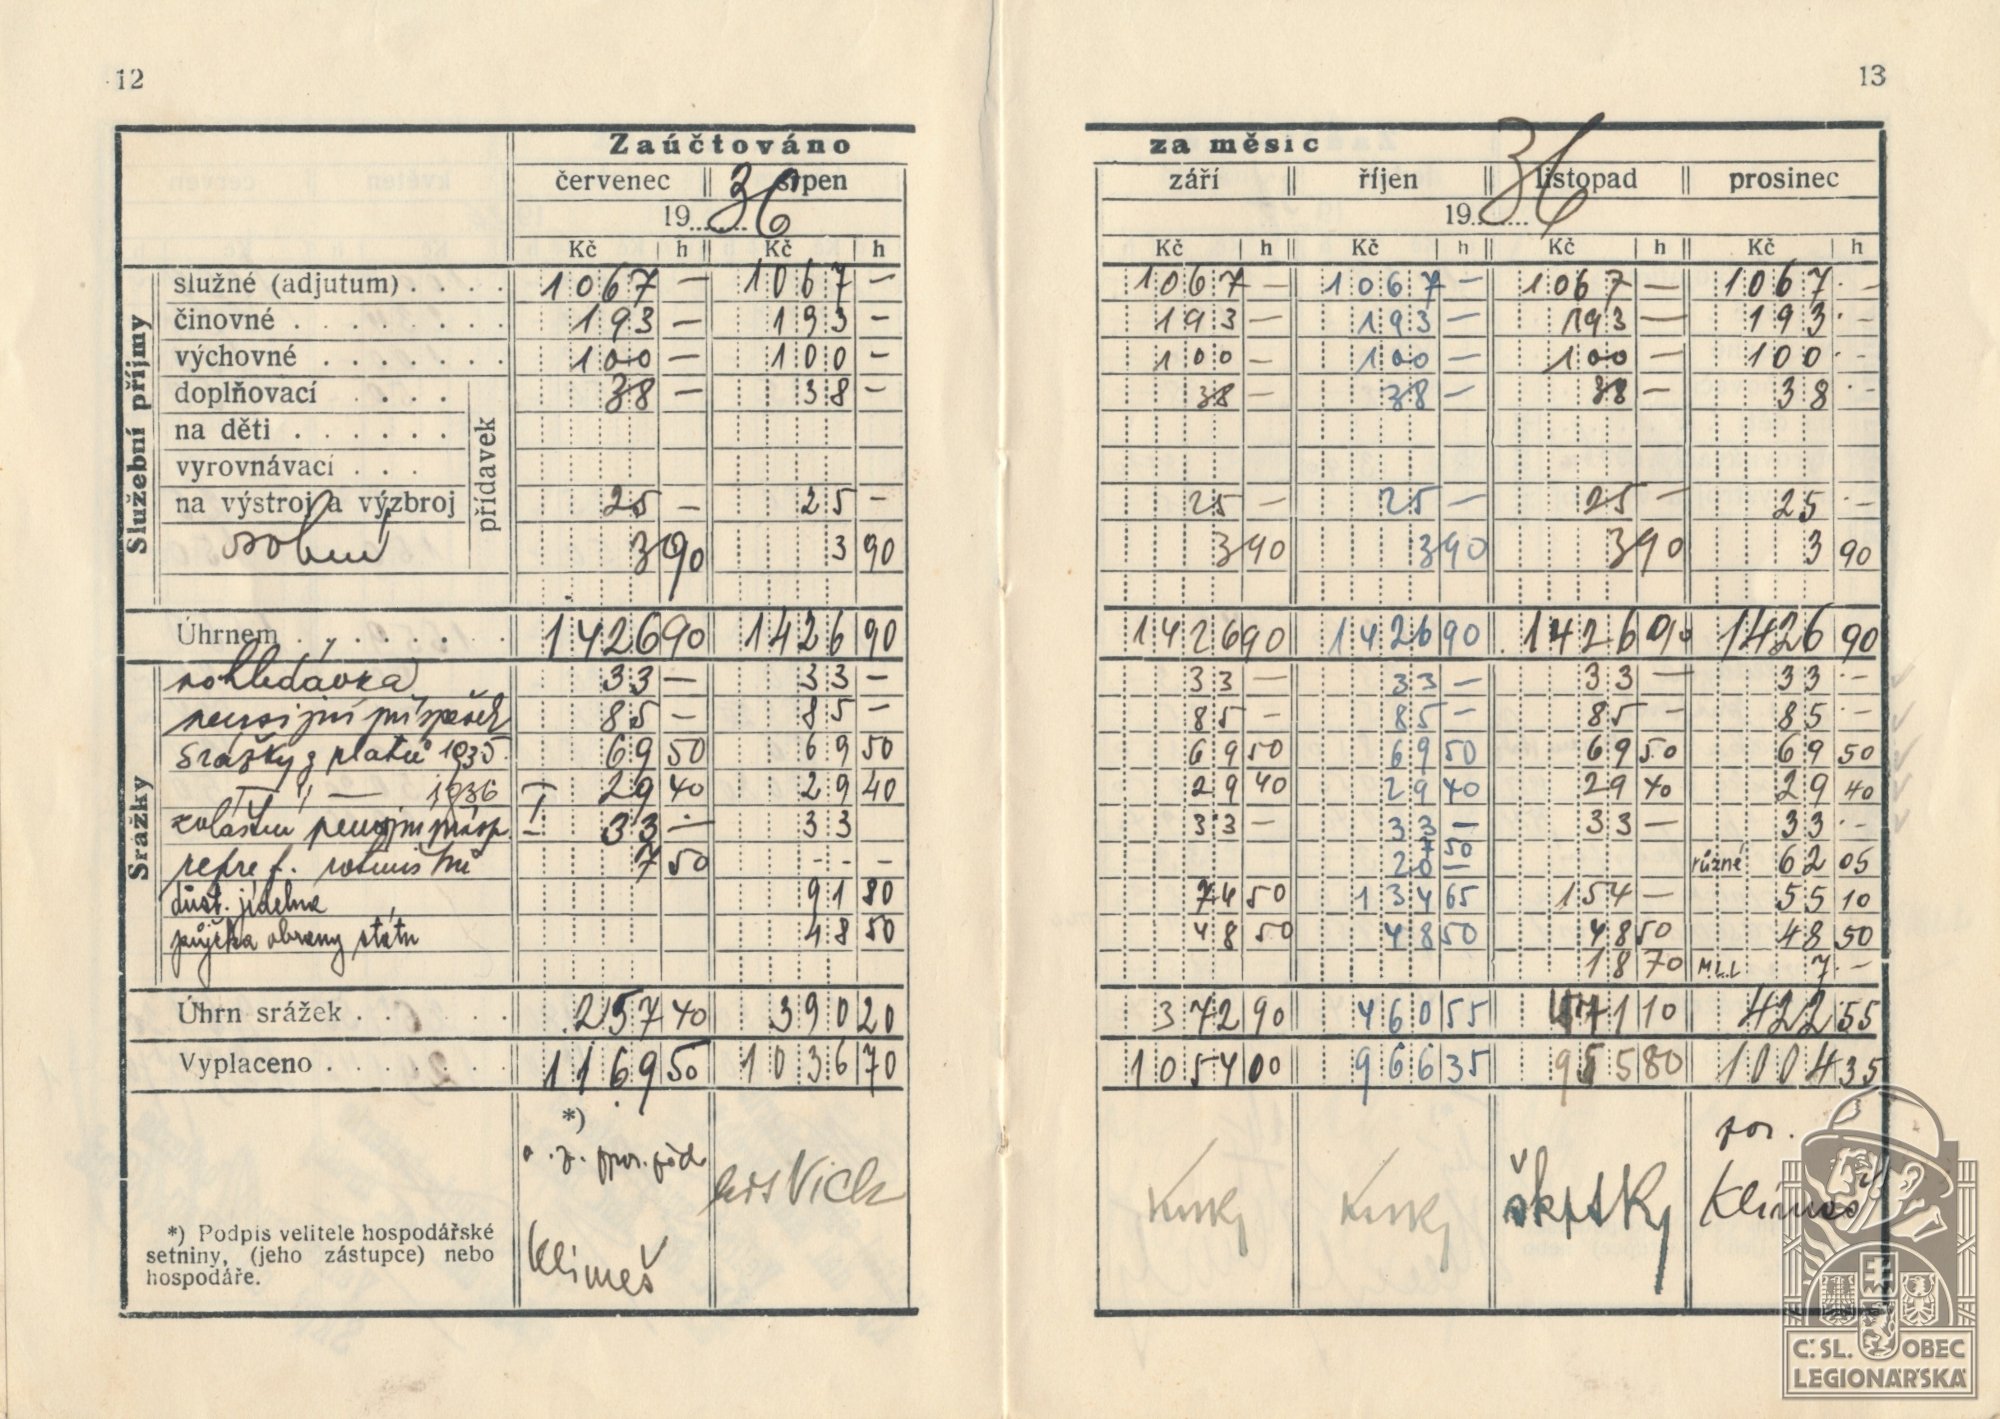 12
Zaúčtováno
červenec srpen
1936
Kč h Kč h
Služební příjmy
služné (adjutum) . . . . 1067 — 1067 —
činovné . . . . . . . . 193 — 193 —
výchovné . . . . . . . 100 — 100 —
doplňovací . . . . 38 — 38 —
na děti . . . . . .
vyrovnávací . . .
na výstroj a výzbroj 25 — 25 —
přídavek
osobní 3 90 3 90
Úhrnem . . . . . . . 1426 90 1426 90
Srážky
pohledávka 33 — 33 —
pensijní příspěvek 85 — 85 —
Srážky z platů 1935 69 50 69 50
— " — 1936 29 40 29 40
zvláštní pensijní přísp. 33 — 33
7 50 - - -
důst. jídelna 91 80
půjčka obrany státu 48 50
Úhrn srážek . . . . . . 257 40 390 20
Vyplaceno . . . . . . . 1169 50 1036 70
*)
Klimeš
*) Podpis velitele hospodářské
setniny, (jeho zástupce) nebo
hospodáře.
13
za měsíc
září říjen listopad prosinec
1936
Kč h Kč h Kč h Kč h
1067 — 1067 — 1067 — 1067 · —
193 — 193 — 193 — 193 · —
100 — 100 — 100 — 100 · —
38 — 38 — 38 — 38 · —
25 — 25 — 25 — 25 · —
3 90 3 90 3 90 3 90
1426 90 1426 90 1426 90 1426 90
33 — 33 — 33 — 33 · —
85 — 85 — 85 — 85 · —
69 50 69 50 69 50 69 50
29 40 29 40 29 40 29 40
33 — 33 — 33 — 33 · —
7 50
20 — různé 62 05
74 50 134 65 154 — 55 10
48 50 48 50 48 50 48 50
18 70 M.L.L 7 · —
372 90 460 55 471 10 422 55
1054 00 966 35 955 80 1004 35
por.
Klimeš
Č. SL. OBEC
LEGIONÁŘSKÁ